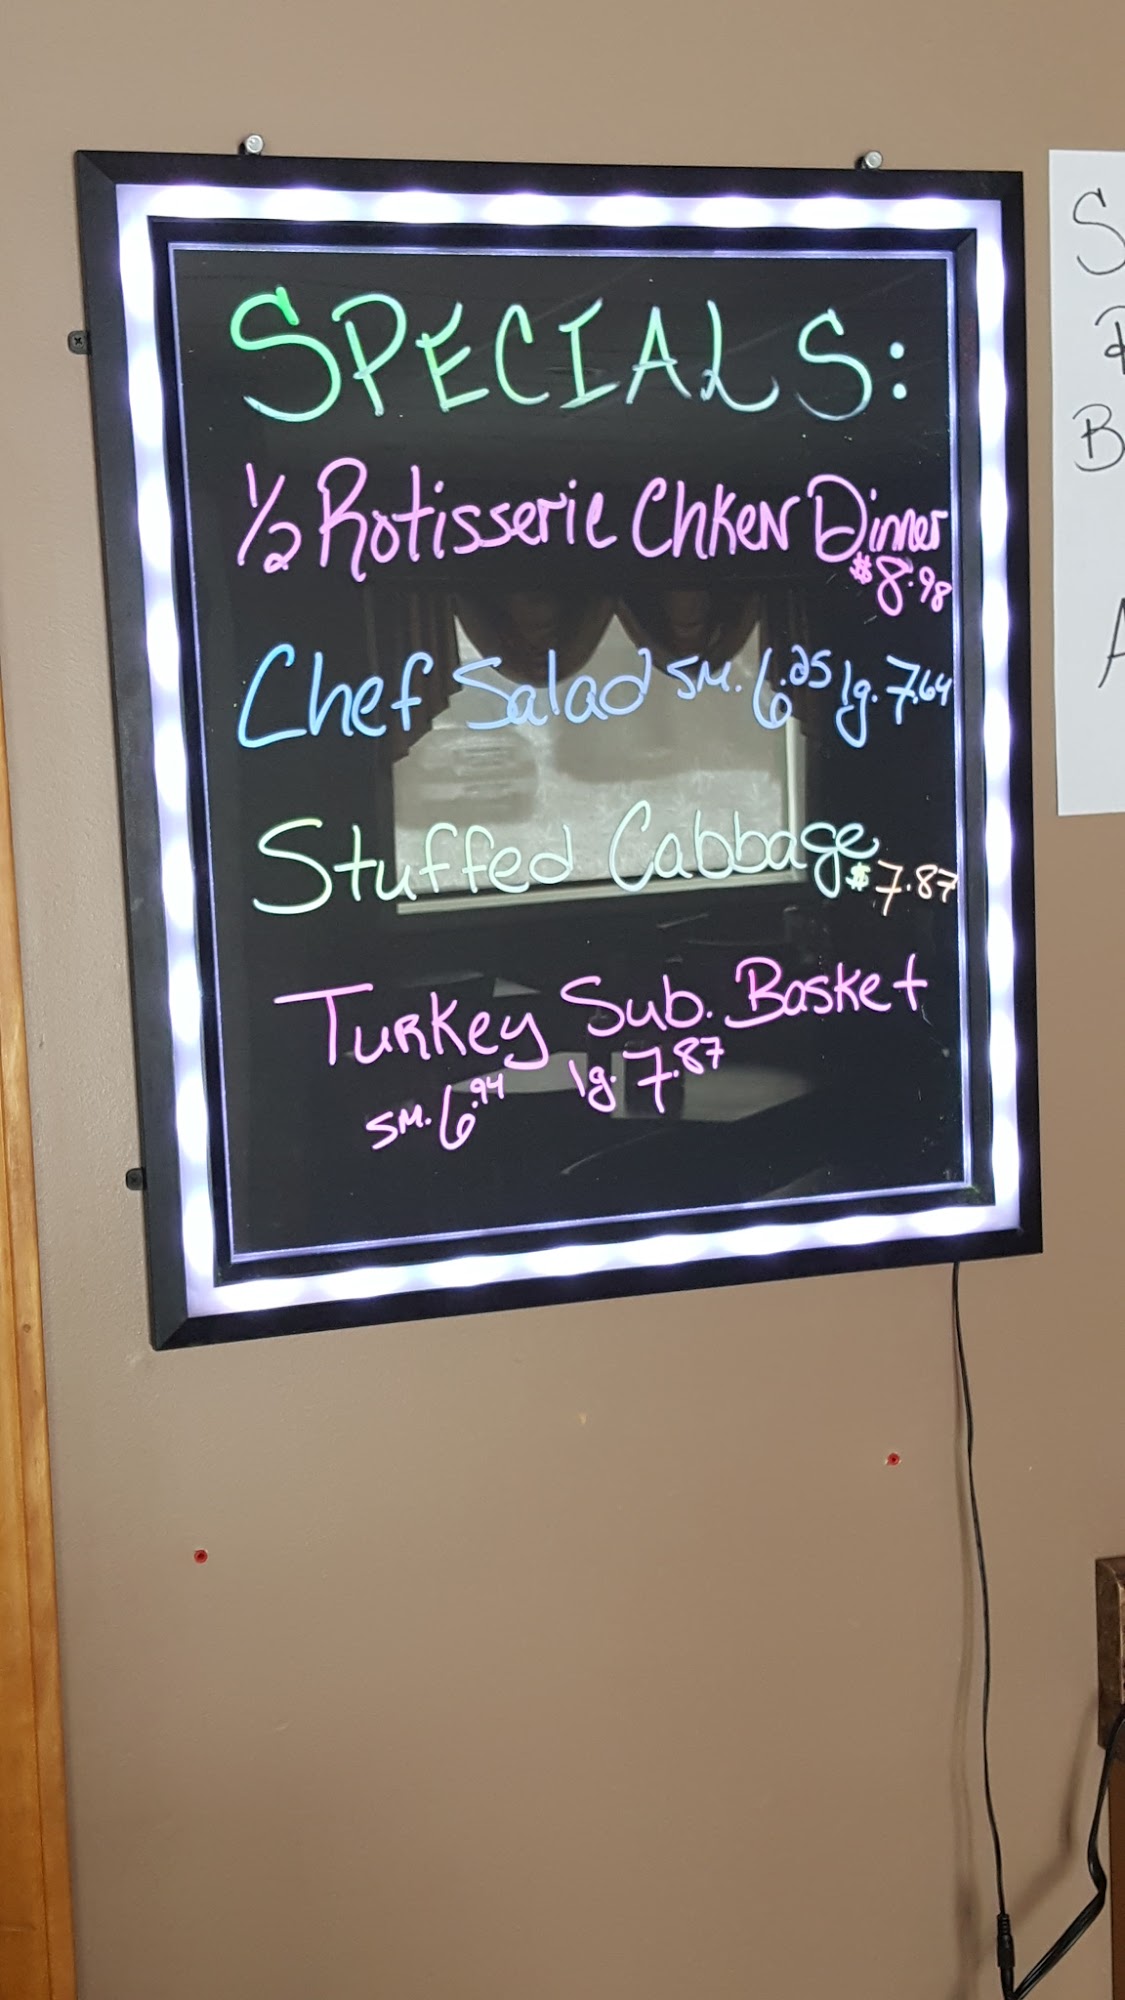 SPECIALS:
1/2 Rotisserie Chken Dinner
$8.98
Chef Salad SM. 6.25 lg. 7.64
Stuffed Cabbage $7.87
Turkey Sub. Basket
SM. 6.94 lg. 7.87
S
B
A